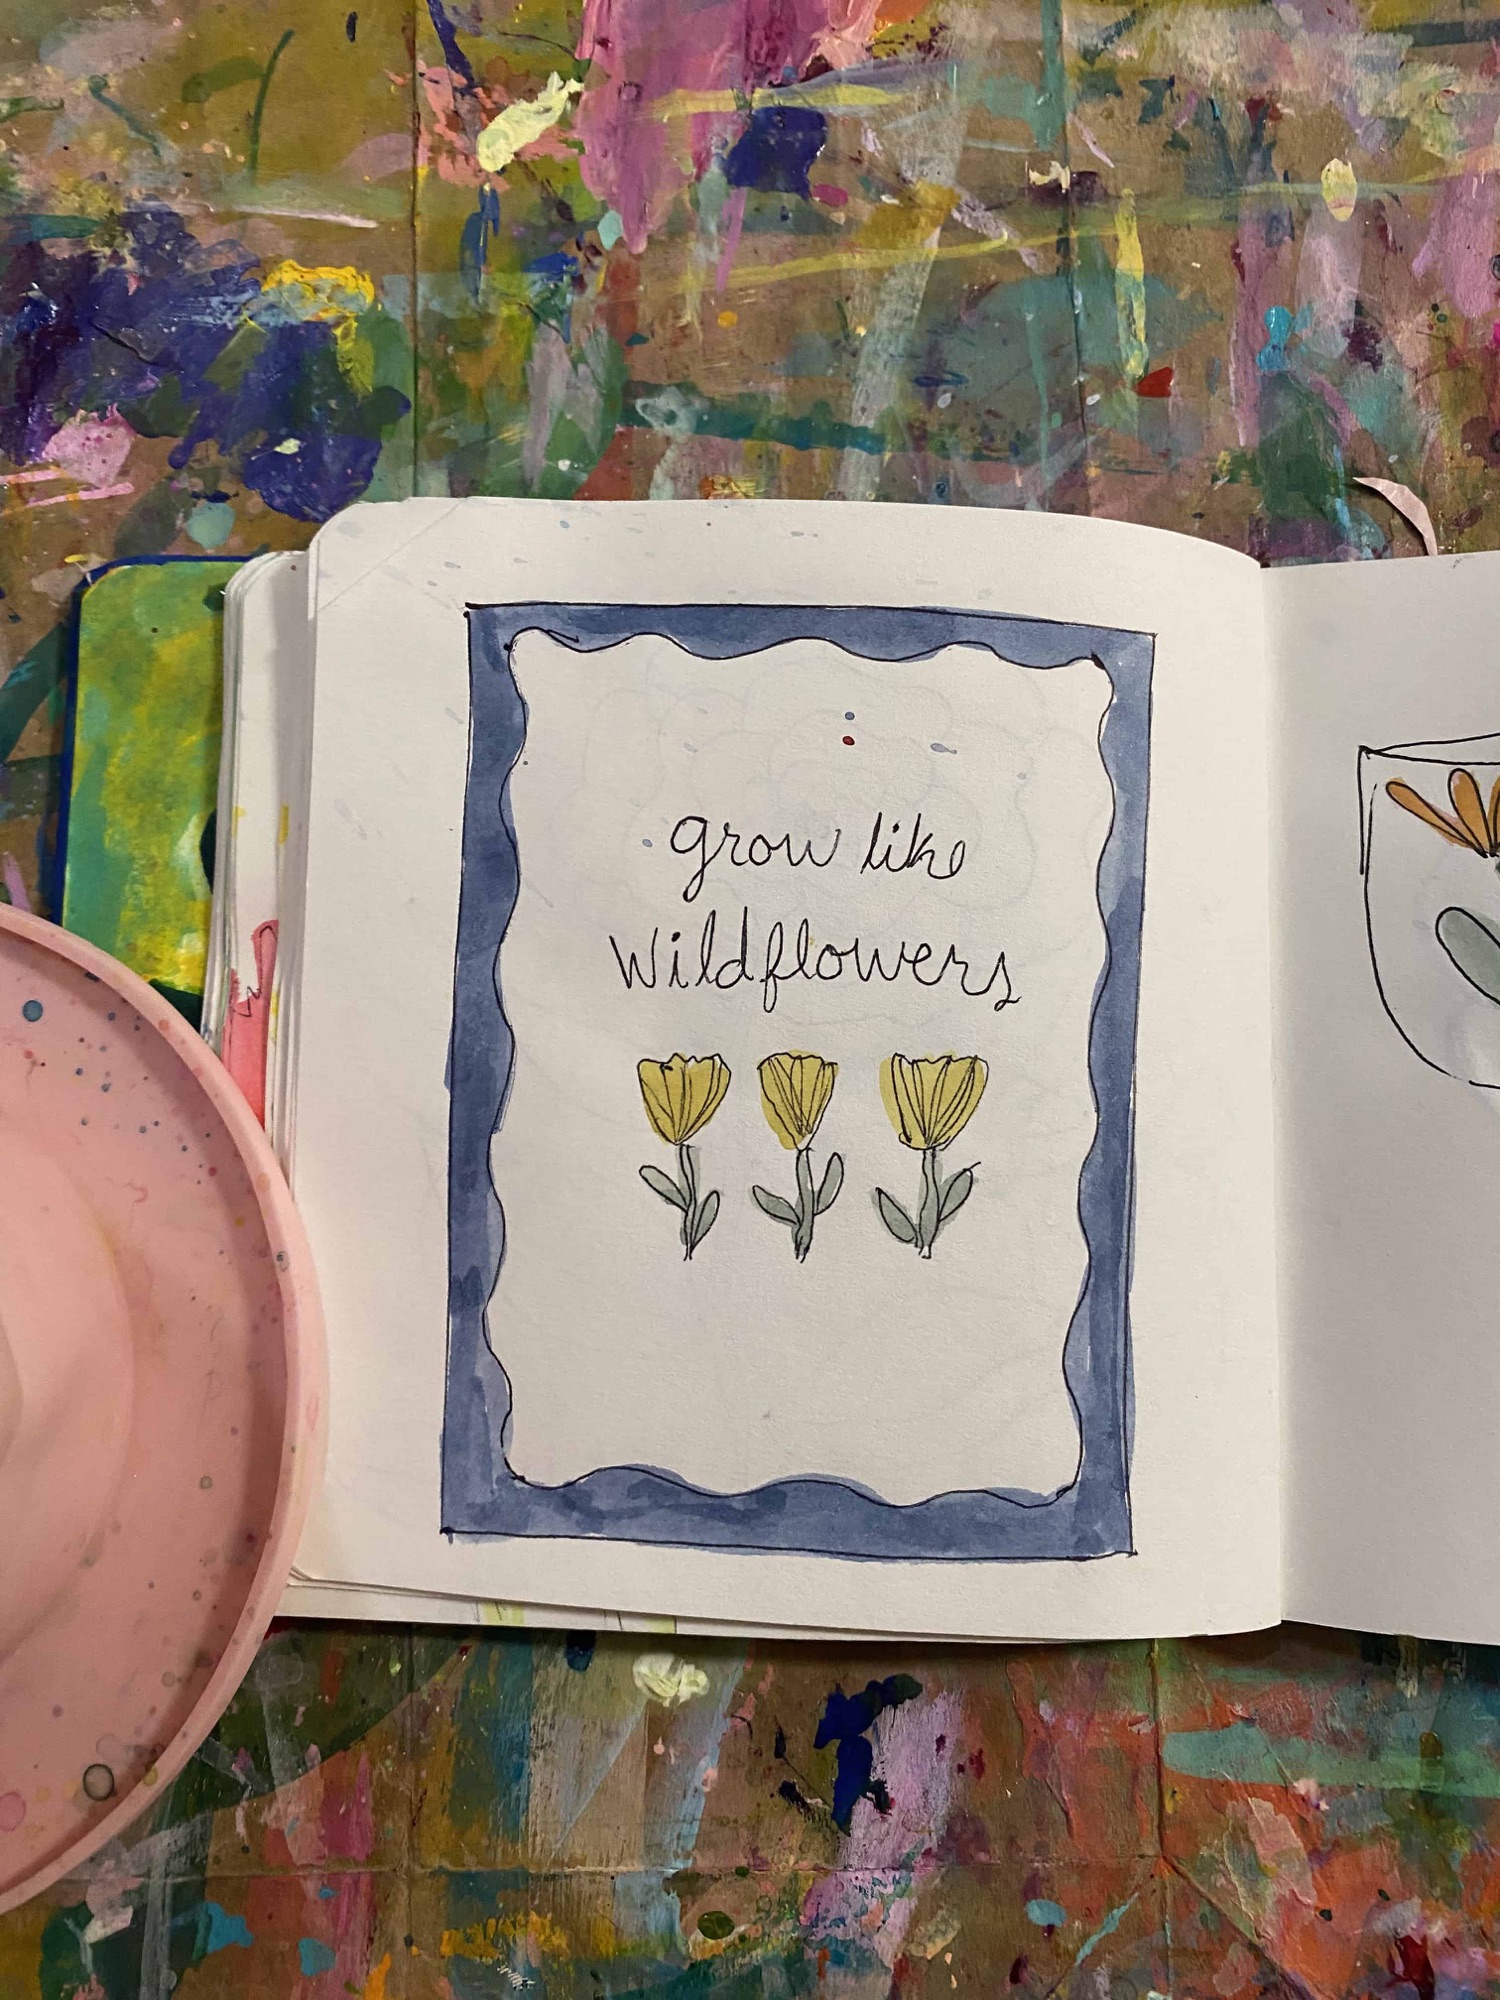 grow like
Wildflowers